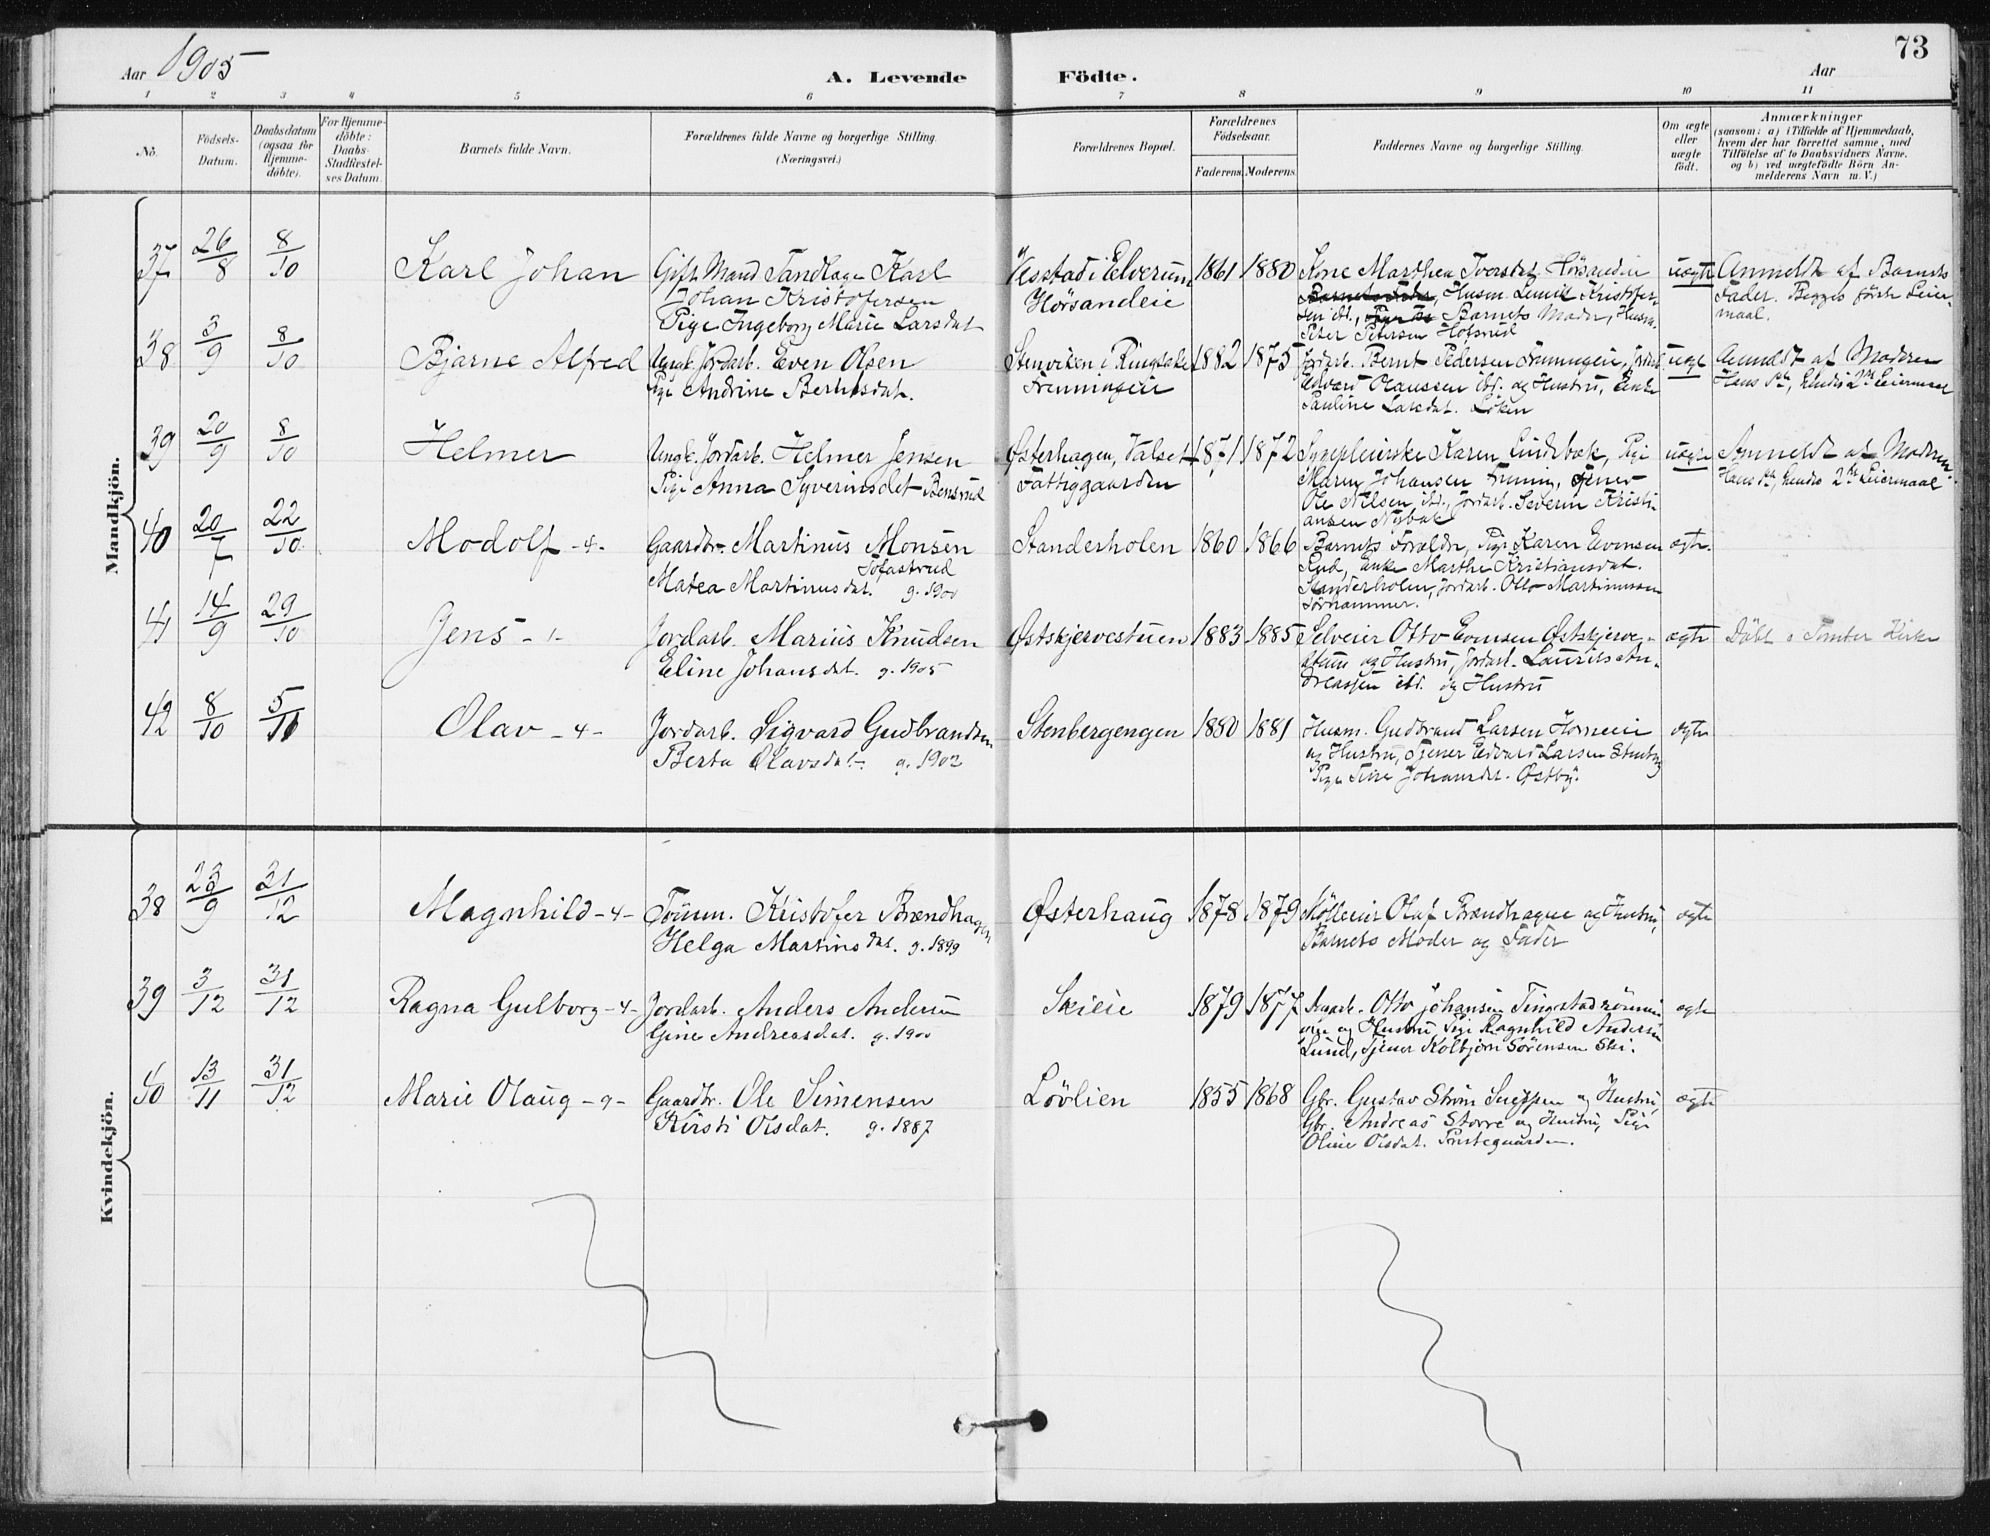 73
Aar 1905
A. Levende Födte.
Aar
1 2 3 4 5 6 7 8 9 10 11
No.
Födsels-
Datum.
Daabsdatum
(ogsaa for
Hjemme-
döbte).
For Hjemme-
döbte:
Daabs-
Stadfæstel-
ses Datum
Barnets fulde Navn.
Forældrenes fulde Navne og borgerlige Stilling.
(Næringsvei.)
Forældrenes Bopæl.
Forældrenes
Födselsaar.
Faderens. Moderens.
Faddernes Navne og borgerlige Stilling.
Om ægte
eller
uægte
födt.
Anmærkninger
(saasom: a) i Tilfælde af Hjemmedaab,
hvem der har forrettet samme, med
Tilföielse af to Daabsvidners Navne.
og b) ved uægtefödte Börn An-
melderens Navn m. V.)
Mandkjön.
37 26/8 8/10 Karl Johan
Gift Mand Karl
Johan Kristofersen
Pige Ingeborg Marie Larsdat
i Elverum
Hörsandeie
1861 1880
Kone Marthea Iversdat.
Husm. Kristofer-
Barnets Moder, Husm.
Peter Petersen
uægte
Anmeldt af Barnets
Fader. Begges förste Leier-
maal.
38 3/9 8/10 Bjarne Alfred
Ungk. Jordarb. Even Olsen
Pige Andrine Berntsdat.
Stenviken i Ringsaker
1882 1875
Jordarb. Bernt Pedersen
Edvard Olaussen ibd. og Hustru, Enke
Pauline Larsdat. Löken
uægt
Anmeldt af Moderen
Hans 1ste, hendes 2det Leiermaal
39 20/9 8/10 Helmer
Ungk. Jordarb. Helmer Jensen
Pige Anna Syverinsdat Bensrud
Østerhagen, Valset
Fattiggaarden
1871 1872
Sygepleierske Karen Lindbæk, Pige
Maren Johansen
Ole Nilsen ibd., Jordarb. Severin Kristi-
ansen Nybak
uægte
Anmeldt af Moderen.
Hans 1ste, hendes 2det Leiermaal
40 20/7 22/10 Modolf -4-
Gaardbr. Martinus Monsen
Tofastrud
Matea Martinusdat. g. 1900
Standerholen
1860 1866
Barnets Foræld., Pige Karen Evensen
Rud, Enke Marthe Kristiansdat.
Standerholen, Jordarb. Otto Martinussen
Torhammer.
ægte.
41 14/9 29/10 Jens -1-
Jordarb. Marius Knudsen
Eline Johansdat. g. 1905
Østskjervestuen
1883 1885
Selveier Otto Evensen Østskjerve-
stuen og Hustru, Jordarb. Laurits An-
dreassen ibd. og Hustru
ægte
Döbt i Tomter Kirke
42 8/10 5/11 Olav -4-
Jordarb. Sigvard Gudbrandsen
Berta Olavsdat. g. 1902
Stenbergengen
1880 1881
Husm. Gudbrand Larsen Horneeie
og Hustru, Tjener Edvard Larsen Stenberg
Pige Tine Johansdat. Østby.
ægte
Kvindekjön.
38 23/9 31/12 Magnhild -4-
Tömm. Kristofer Brændhagen
Helga Martinsdat. g. 1899
Østerhaug
1878 1879
Mölleeier Olaf Brændhagen og Hustru,
Barnets Moder og Fader
ægte
39 3/12 31/12 Ragna Gulborg -4-
Jordarb. Anders Andersen
Gine Andreasdat. g. 1900
Skieie
1879 1877
Otto Johansen
og Hustru, Pige Ragnhild Andersen
Lund, Tjener Kolbjörn Sörensen Ski.
ægte
40 13/11 31/12 Marie Olaug -9-
Gaardbr. Ole Simensen
Kirsti Olsdat. g. 1887
Lövlien
1855 1868
Gbr. Gustav Ström Sneppen og Hustru,
Gbr. Andreas Storre og Hustru, Pige
Oline Olsdat. Prestegaarden.
ægte